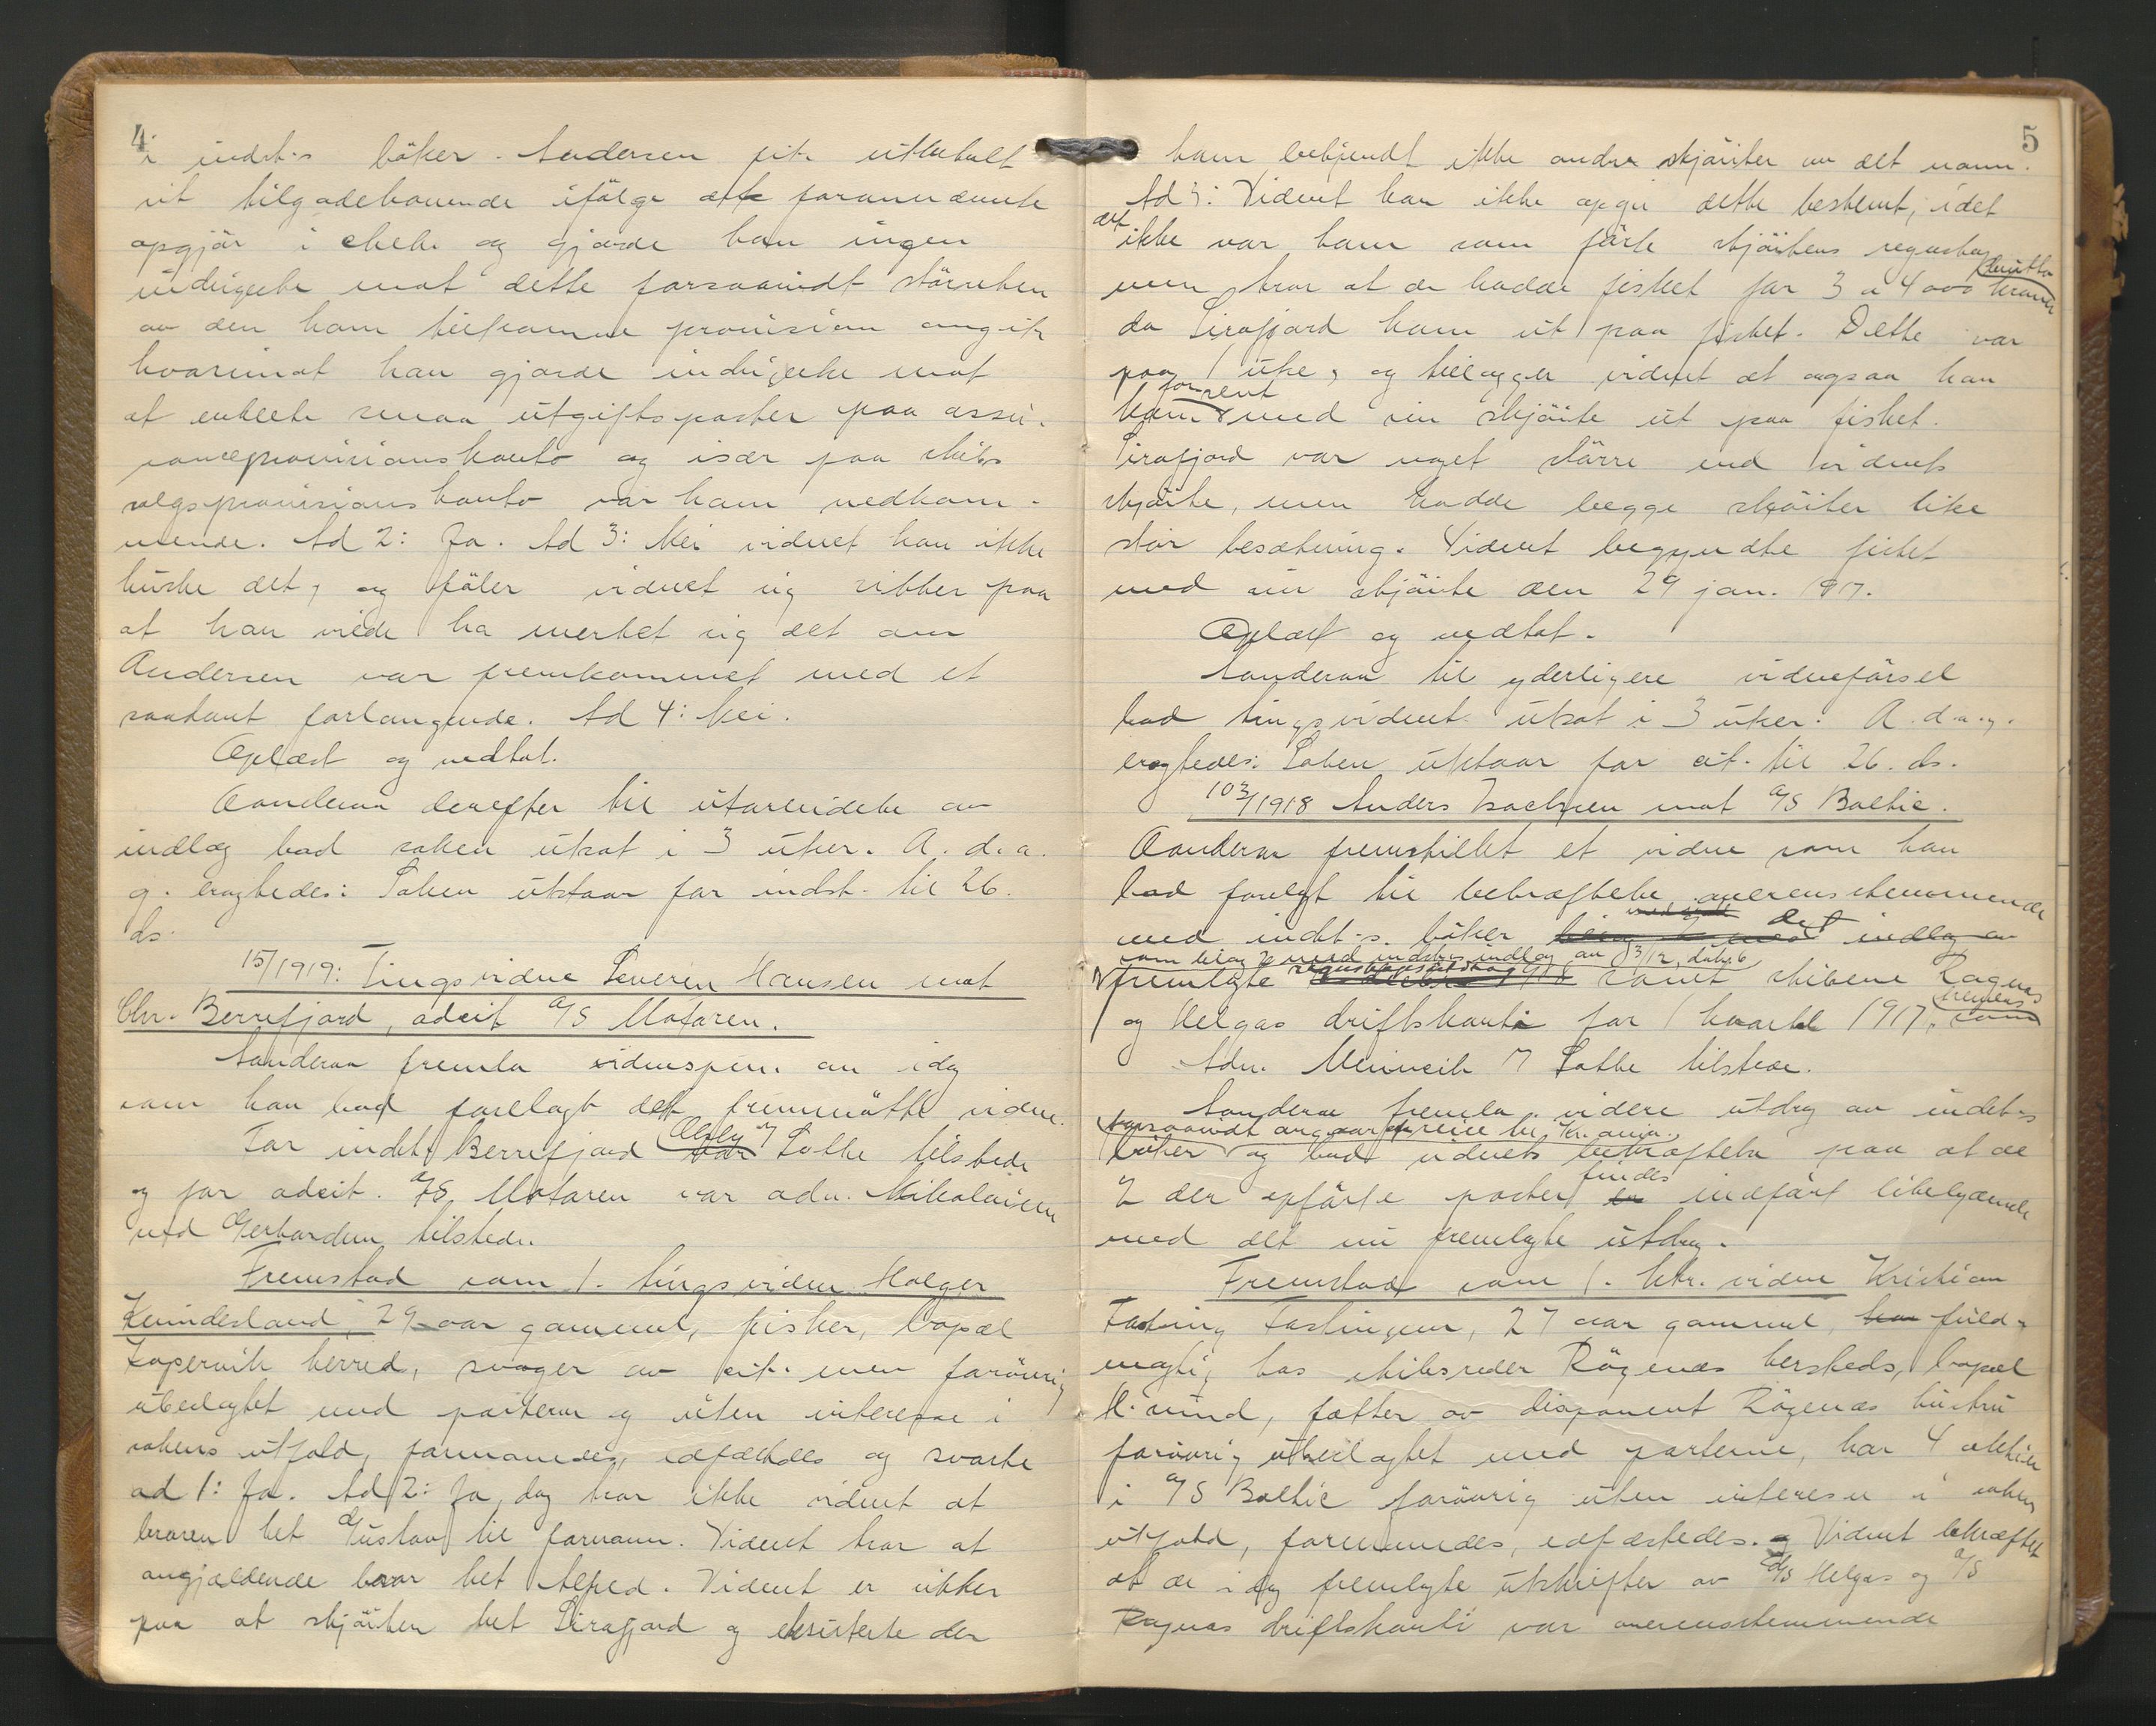 4
i indst.s böker. Andersen fik utbetalt
sit tilgodehavende ifölge det forannævnte
opgjör i check og gjorde han ingen
indsigelse mot dette forsaavidt störrelsen
av den ham tilkomne provision angik
hvorimot han gjorde indsigelse mot
at enkelte smaa utgiftsposter paa assu-
ranceprovisionskonto og især paa skibs
salgsprovisionskonto var ham vedkom-
mende. Ad 2: Ja. Ad 3: Nei vidnet kan ikke
huske det, og föler vidnet sig sikker paa
at han vilde ha merket sig det om
Andersen var fremkommet med et
saadant forlangende. Ad 4: Nei.
Oplæst og vedtat.
Aanderaa derefter til utarbeidelse av
indlæg bad saken utsat i 3 uker. A. d. a.
g. eragtedes: Saken utstaar for indst. til 26.
ds.
15/1919: Tingsvidne Severin Hansen mot
Chr. Berrefjord, adcit. A/S Motoren.
Aanderaa fremla vidnespm. av idag
som han bad forelagt det fremmötte vidne.
For indst. Berrefjord Obly v/ Lothe tilstede
og for adcit. A/S Motoren var adv. Nikolaisen
ved Gerhardsen tilstede.
Fremstod som 1. tingsvidne Holger
Kvindesland, 29 aar gammel, fisker, bopæl
Kopervik herred, svoger av cit. men forövrig
ubeslegtet med parterne og uten interesse i
sakens utfald, formanedes, edfæstedes og svarte
ad 1: Ja. Ad 2: Ja, dog tror ikke vidnet at
broren het Gustav til fornavn. Vidnet tror at
angjældende bror het Alfred. Vidnet er sikker
paa at skjöiten het Sirafjord og eksisterte der
5
ham bekjendt ikke andre skjöiter av det navn.
Ad 3: Vidnet kan ikke opgi dette bestemt, idet
det
ikke var ham som förte skjöitens regnskap
brutto
men tror at de hadde fisket for 3 a 4000 kroner
da Sirafjord kom ut paa fisket. Dette var
paa 1 uke, og tillægger vidnet at ogsaa han
for sent
kom med sin skjöite ut paa fisket.
Sirafjord var noget större end vidnets
skjöite, men hadde begge skjöiter like
stor besætning. Vidnet begyndte fisket
med sin skjöite den 29 jan. 1917.
Oplæst og vedtat.
Aanderaa til yderligere vidneförsel
bad tingsvidnet utsat i 3 uker. A. d. a. g.
eragtedes: Saken utstaar for cit. til 26. ds.
103/1918 Anders Isachsen mot A/S Baltic.
Aanderaa fremstillet et vidne som han
bad forelagt til bekræftelse overensstemmende
med indst.s. böker det indlæg av
som bilag med indst.s indlæg av 3/12,
fremlagte regnskapsutdrag samt skibene Ragnas
og Helgas driftskonti for 1 kvartal 1917,
Adv. Meinich v/ Lothe tilstede.
Aanderaa fremla videre utdrag av indst.s
forsaavidt angaar en reise til Kr.ania.
böker og bad vidnets bekræftelse paa at de
findes
2 der opförte poster er indfört likelydende
med det nu fremlagte utdrag.
Fremstod som 1. vidne Kristian
Fasting Fastingsen, 27 aar gammel, fuld-
mægtig hos skibsreder Rögenæs hersteds, bopæl
H.sund, fætter av disponent Rögenæs hustru
forövrig ubeslegtet med parterne, har 4 aktier
i A/S Baltic forövrig uten interesse i sakens
utfald, formanedes, edfæstedes. og Vidnet bekræftet
at de i dag fremlagte utskrifter av D/S Helgas og D/S
Ragnas driftskonti var overensstemmende